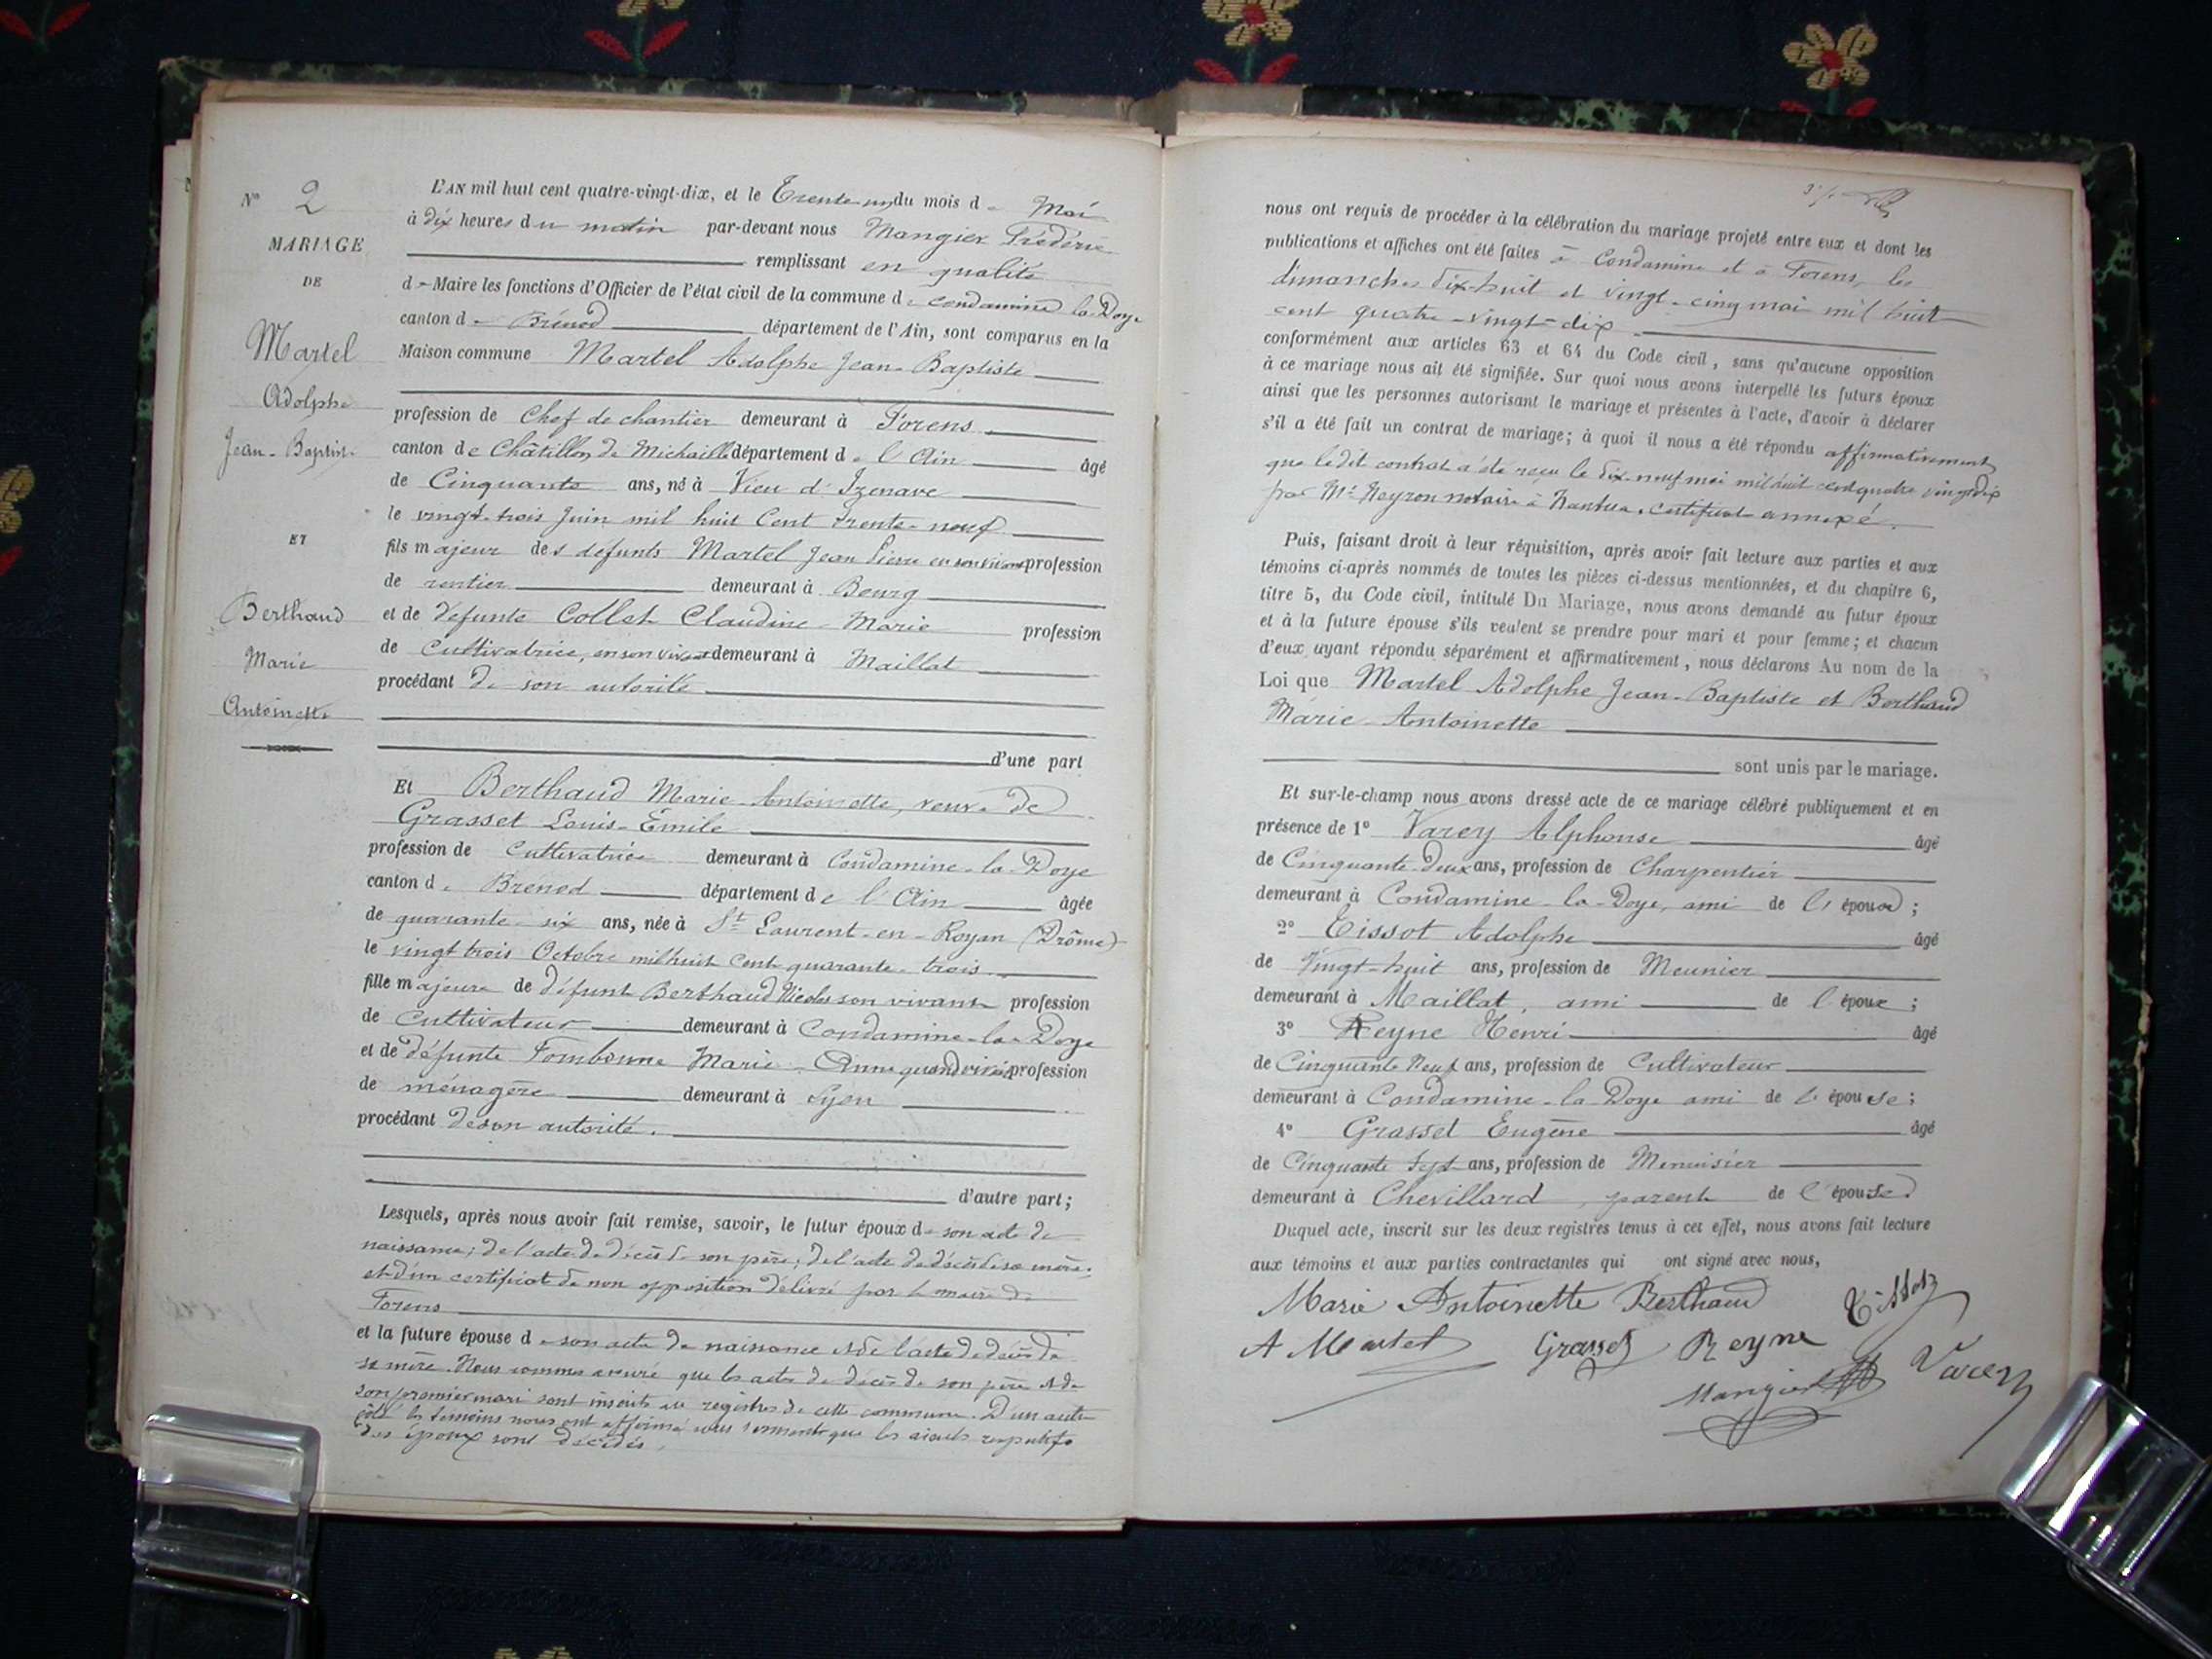 N° 2
MARIAGE
DE
Martel
Adolphe
Jean-Baptiste
ET
Berthaud
Marie
Antoinette
L'AN mil huit cent quatre-vingt-dix, et le Trente-un du mois de Mai
à dix heures du matin par-devant nous Mangier Frédéric
remplissant en qualité
de Maire les fonctions d'Officier de l'état civil de la commune de Condamine la Doye
canton de Brénod département de l'Ain, sont comparus en la
Maison commune Martel Adolphe Jean-Baptiste
profession de Chef de chantier demeurant à Forens
canton de Châtillon de Michaille département de l'Ain âgé
de Cinquante ans, né à Vieu d'Izenave
le vingt-trois Juin mil huit Cent trente-neuf
fils majeur des défunts Martel Jean Pierre en son vivant profession
de rentier demeurant à Bourg
et de défunte Collet Claudine-Marie profession
de Cultivatrice, en son vivant demeurant à Maillat
procédant de son autorité
d'une part
Et Berthaud Marie-Antoinette, veuve de
Grasset Louis-Emile
profession de Cultivatrice demeurant à Condamine-la-Doye
canton de Brénod département de l'Ain âgée
de quarante-six ans, née à St Laurent-en-Royan (Drôme)
le vingt trois Octobre mil huit Cent quarante-trois
fille majeure de défunt Berthaud Nicolas son vivant profession
de Cultivateur demeurant à Condamine-la-Doye
et de défunte Tombonne Marie-Anne quand vivait profession
de ménagère demeurant à Lyon
procédant de son autorité.
d'autre part;
Lesquels, après nous avoir fait remise, savoir, le futur époux de son acte de
naissance; de l'acte de décès de son père; de l'acte de décès de sa mère;
et d'un certificat de non opposition délivré par le maire de
Forens
et la future épouse de son acte de naissance et de l'acte de décès de
sa mère. Nous sommes assuré que les actes de décès de son père et de
son premier mari sont inscrits au registre de cette commune. D'un autre
côté les témoins nous ont affirmé sous serment que les aïeuls respectifs
des époux sont décédés.
nous ont requis de procéder à la célébration du mariage projeté entre eux et dont les
publications et affiches ont été faites à Condamine et à Forens, les
dimanches dix-huit et vingt-cinq mai mil huit
cent quatre-vingt-dix
conformément aux articles 63 et 64 du Code civil, sans qu'aucune opposition
à ce mariage nous ait été signifiée. Sur quoi nous avons interpellé les futurs époux
ainsi que les personnes autorisant le mariage et présentes à l'acte, d'avoir à déclarer
s'il a été fait un contrat de mariage; à quoi il nous a été répondu affirmativement
que ledit contrat a été reçu le dix-neuf mai mil huit cent quatre vingt dix
par Me Neyron notaire à Nantua, certificat annexé.
Puis, faisant droit à leur réquisition, après avoir fait lecture aux parties et aux
témoins ci-après nommés de toutes les pièces ci-dessus mentionnées, et du chapitre 6,
titre 5, du Code civil, intitulé Du Mariage, nous avons demandé au futur époux
et à la future épouse s'ils veulent se prendre pour mari et pour femme; et chacun
d'eux ayant répondu séparément et affirmativement, nous déclarons Au nom de la
Loi que Martel Adolphe Jean-Baptiste et Berthaud
Marie-Antoinette
sont unis par le mariage.
Et sur-le-champ nous avons dressé acte de ce mariage célébré publiquement et en
présence de 1° Varey Alphonse âgé
de Cinquante-deux ans, profession de Charpentier
demeurant à Condamine-la-Doye, ami de l'époux;
2° Tissot Adolphe âgé
de Vingt-huit ans, profession de Meunier
demeurant à Maillat, ami de l'époux;
3° Reyne Henri âgé
de Cinquante Neuf ans, profession de Cultivateur
demeurant à Condamine-la-Doye ami de l'épouse;
4° Grasset Eugène âgé
de Cinquante Sept ans, profession de Menuisier
demeurant à Chevillard, parent de l'épouse
Duquel acte, inscrit sur les deux registres tenus à cet effet, nous avons fait lecture
aux témoins et aux parties contractantes qui ont signé avec nous,
Marie Antoinette Berthaud Tissot
A Martel Grasset Reyne Varey
Mangier